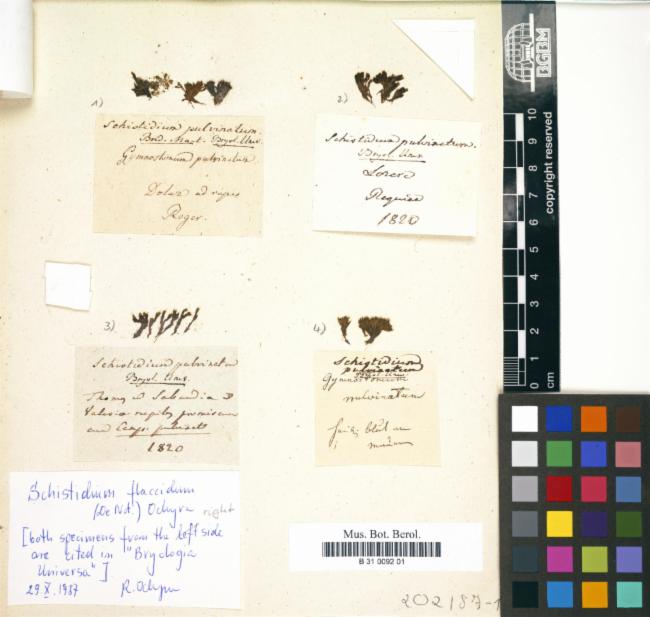 1)
Schistidium pulvinatum.
Brid. Mant. Bryol. Univ.
Gymnostomum pulvinatum
ad rupes
Roger.
2)
Schistidium pulvinatum.
Bryol. Univ.
Lozere
Requien
1820
3)
Schistidium pulvinatum
Bryol. Univ.
Thomas Sabaudia
rupibus
1820
4)
Schistidium
pulvinatum
Bryol. Univ.
Gymnostomum
pulvinatum
Schistidium flaccidum
(De Not.) Ochyra right
[both specimens from the left side
are cited in "Bryologia
Universa"]
29.X.1987 R. Ochyra
Mus. Bot. Berol.
B 31 0092 01
202187-1
BGBM
copyright reserved
10
9
8
7
6
5
4
3
2
1
0
cm